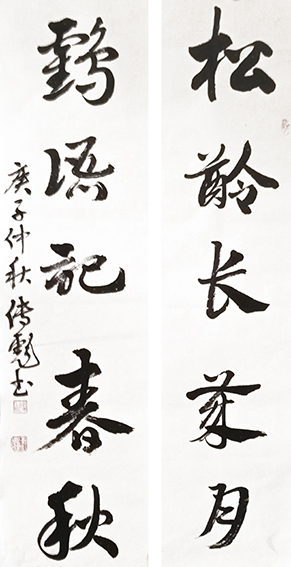 松龄长岁月
鹤语记春秋
庚子仲秋传彪书